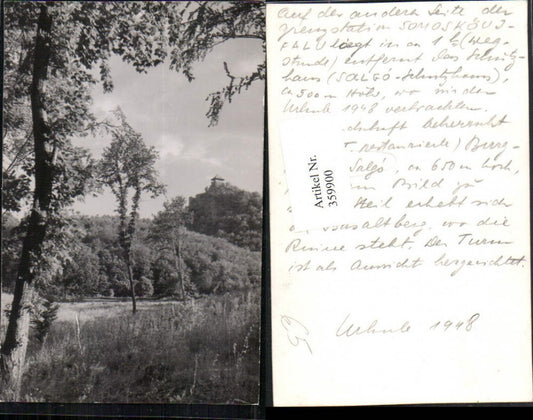 Auf der anderen Seite der
Grenzstation SOMOSKÖUJ-
FALU liegt in ca 1 ½ (Weg
stunde) entfernt das Schutz-
haus (SALGÓ-Schutzhaus),
ca 500 m Höhe, wo wir den
Urlaub 1948 verbrachten.
dschaft beherrscht
restaurierte) Burg-
Salgó, ca 650 m hoch,
im Bild zu
Steil erhebt sich
Basaltberg, wo die
Ruine steht. Der Turm
ist als Aussicht hergerichtet.
Urlaub 1948
Artikel Nr.
359900